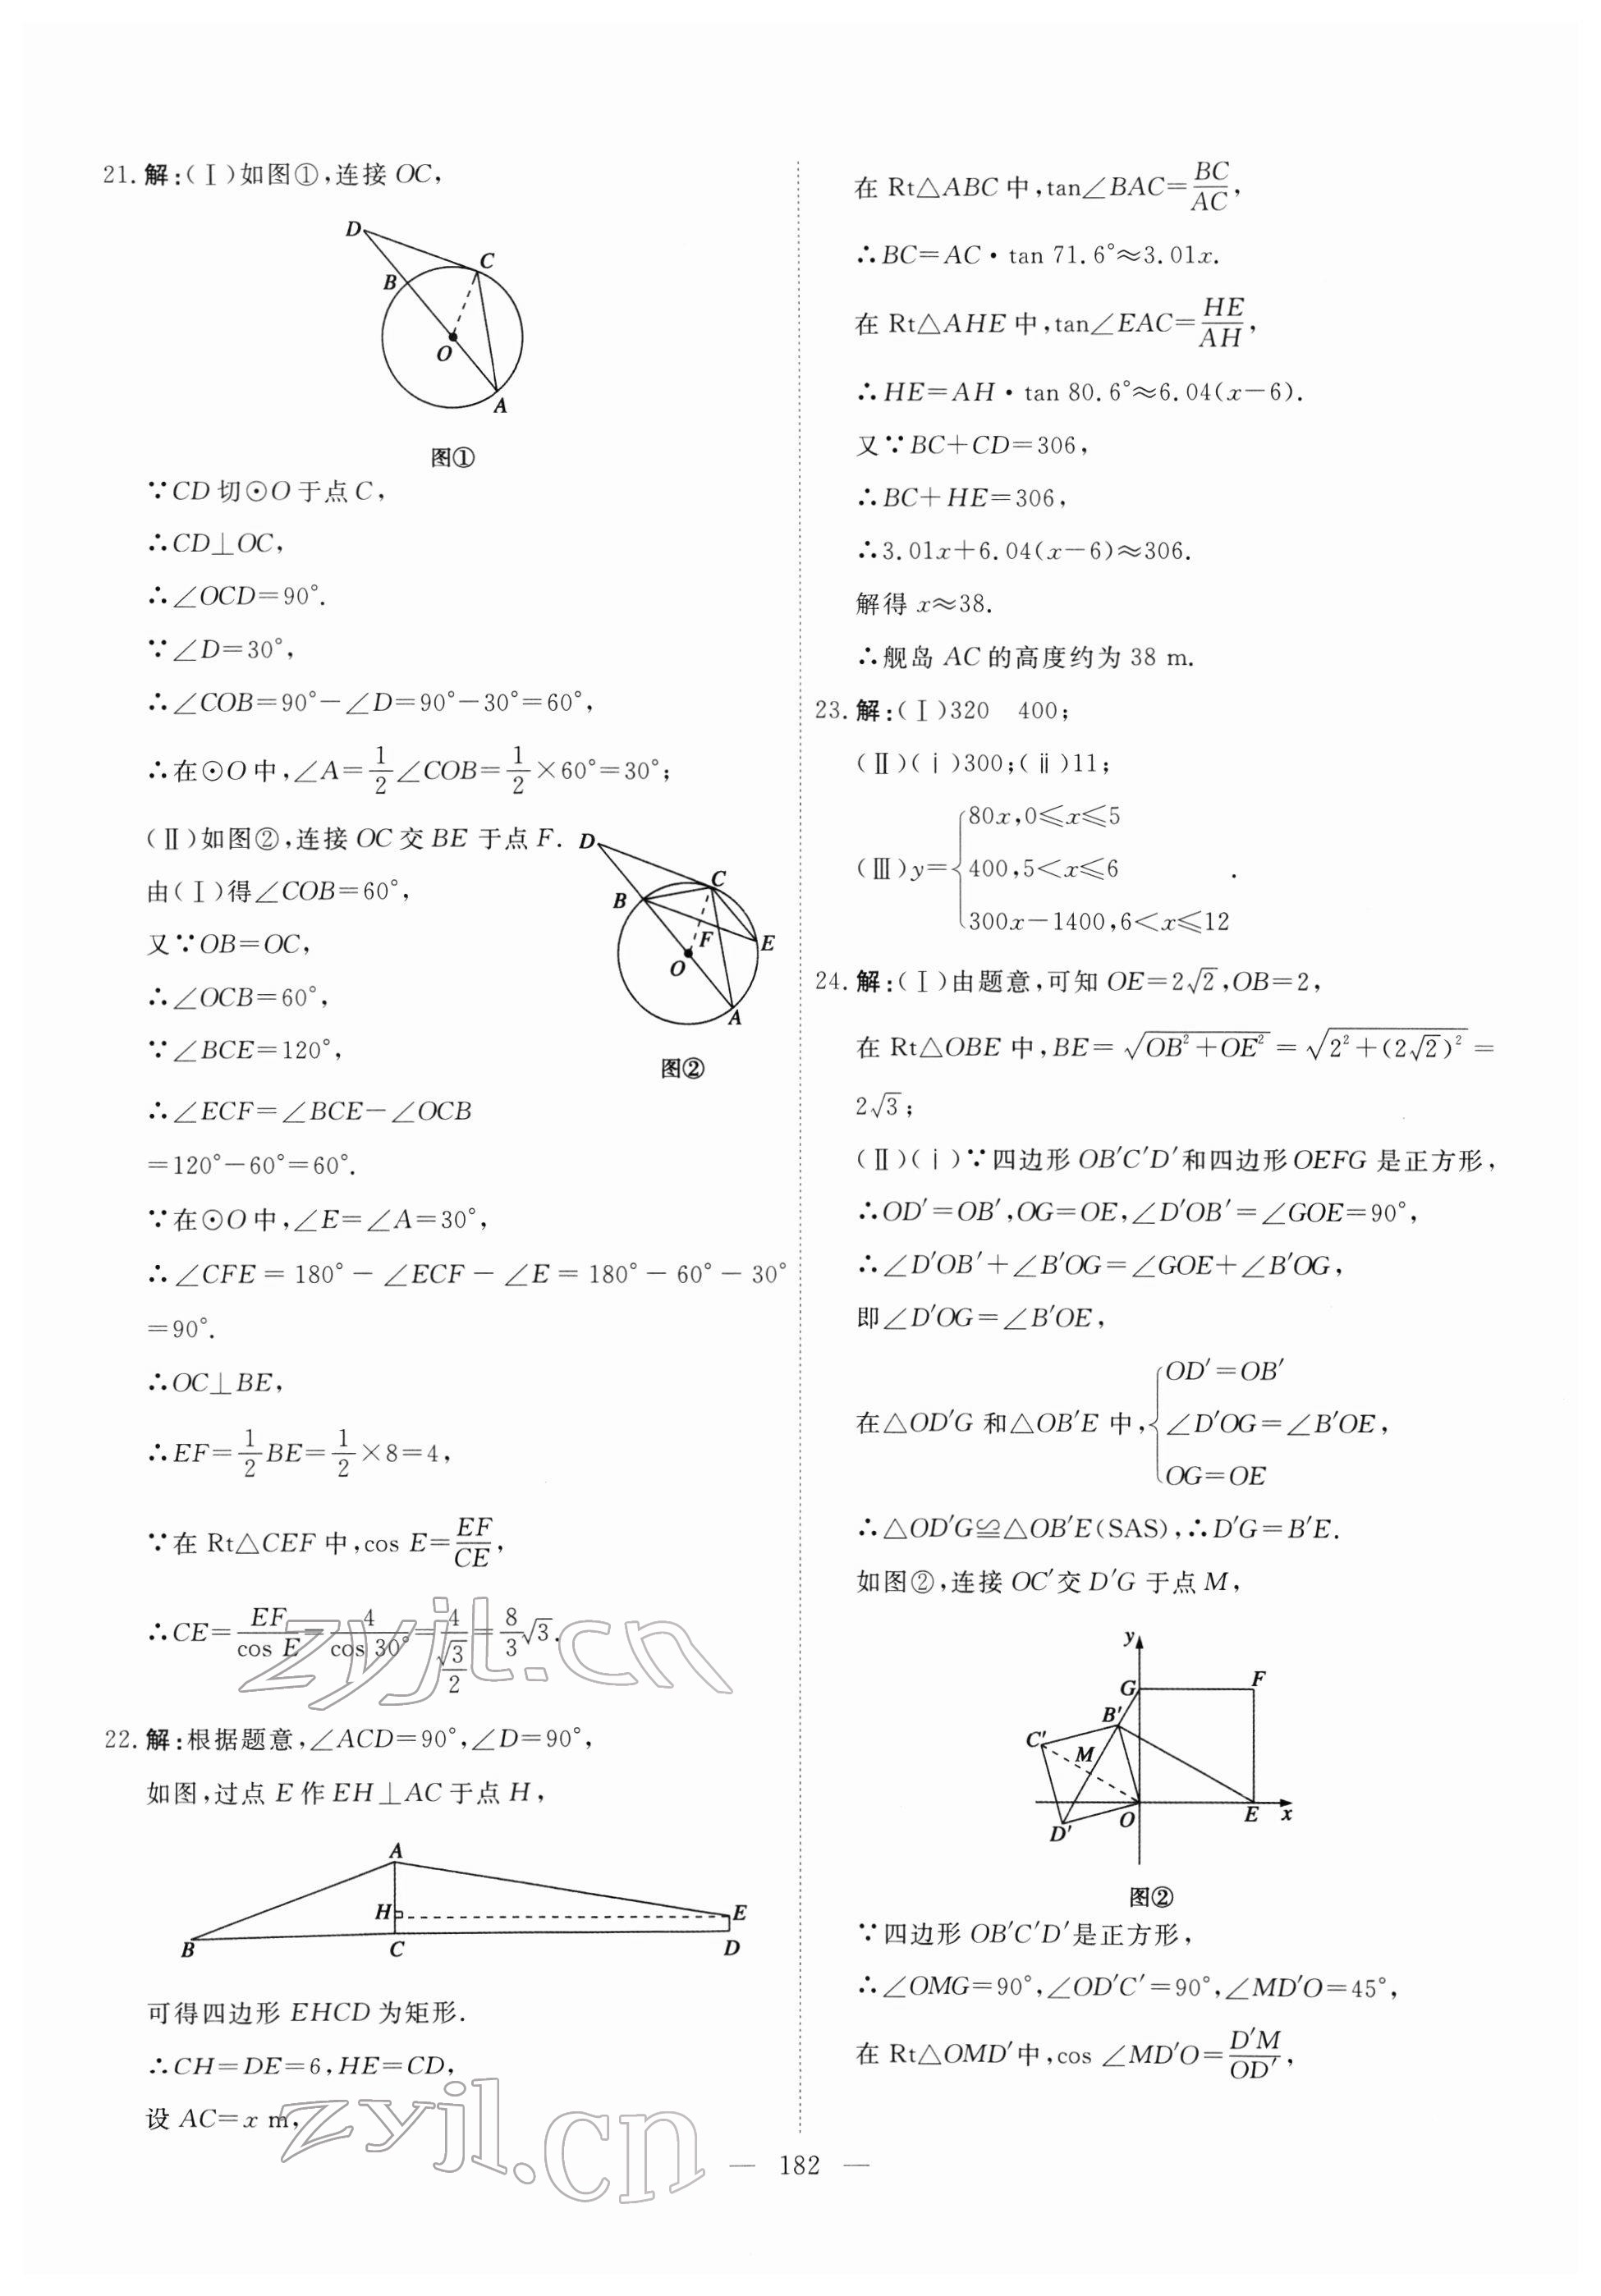 21.解:(Ⅰ)如图①,连接 OC,
D
C
B
O
A
图①
∵CD 切⊙O 于点 C,
∴CD⊥OC,
∴∠OCD=90°.
∵∠D=30°,
∴∠COB=90°-∠D=90°-30°=60°,
∴在⊙O 中,∠A=1/2∠COB=1/2×60°=30°;
(Ⅱ)如图②,连接 OC 交 BE 于点 F.
由(Ⅰ)得∠COB=60°,
又∵OB=OC,
∴∠OCB=60°,
∵∠BCE=120°,
D
C
B
F
E
O
A
图②
∴∠ECF=∠BCE-∠OCB
=120°-60°=60°.
∵在⊙O 中,∠E=∠A=30°,
∴∠CFE=180°-∠ECF-∠E=180°-60°-30°
=90°.
∴OC⊥BE,
∴EF=1/2BE=1/2×8=4,
∵在 Rt△CEF 中,cos E=EF/CE,
∴CE=EF/cos E=4/cos 30°=4/(√3/2)=8/3√3.
zyjl.cn
22.解:根据题意,∠ACD=90°,∠D=90°,
如图,过点 E 作 EH⊥AC 于点 H,
A
H
E
B
C
D
可得四边形 EHCD 为矩形.
∴CH=DE=6,HE=CD,
设 AC=x m,
zyjl.cn
在 Rt△ABC 中,tan∠BAC=BC/AC,
∴BC=AC·tan 71.6°≈3.01x.
在 Rt△AHE 中,tan∠EAC=HE/AH,
∴HE=AH·tan 80.6°≈6.04(x-6).
又∵BC+CD=306,
∴BC+HE=306,
∴3.01x+6.04(x-6)≈306.
解得 x≈38.
∴舰岛 AC 的高度约为 38 m.
23.解:(Ⅰ)320 400;
(Ⅱ)(ⅰ)300;(ⅱ)11;
80x,0≤x≤5
(Ⅲ)y={400,5<x≤6.
300x-1400,6<x≤12
24.解:(Ⅰ)由题意,可知 OE=2√2,OB=2,
在 Rt△OBE 中,BE=√(OB²+OE²)=√(2²+(2√2)²)=
2√3;
(Ⅱ)(ⅰ)∵四边形 OB′C′D′和四边形 OEFG 是正方形,
∴OD′=OB′,OG=OE,∠D′OB′=∠GOE=90°,
∴∠D′OB′+∠B′OG=∠GOE+∠B′OG,
即∠D′OG=∠B′OE,
OD′=OB′
在△OD′G 和△OB′E 中,{∠D′OG=∠B′OE,
OG=OE
∴△OD′G≌△OB′E(SAS),∴D′G=B′E.
如图②,连接 OC′交 D′G 于点 M,
y
G
F
B′
C′
M
O
E
x
D′
图②
∵四边形 OB′C′D′是正方形,
∴∠OMG=90°,∠OD′C′=90°,∠MD′O=45°,
在 Rt△OMD′中,cos ∠MD′O=D′M/OD′,
— 182 —